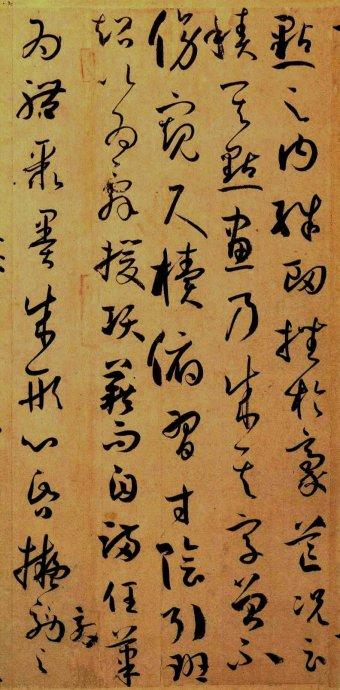 點之內殊衄挫於豪芒況云
積其點畫乃成其字曾不
傍窺尺牘俯習寸陰引班
超以為辭援項籍而自滿任筆
為體聚墨成形心昏擬效之